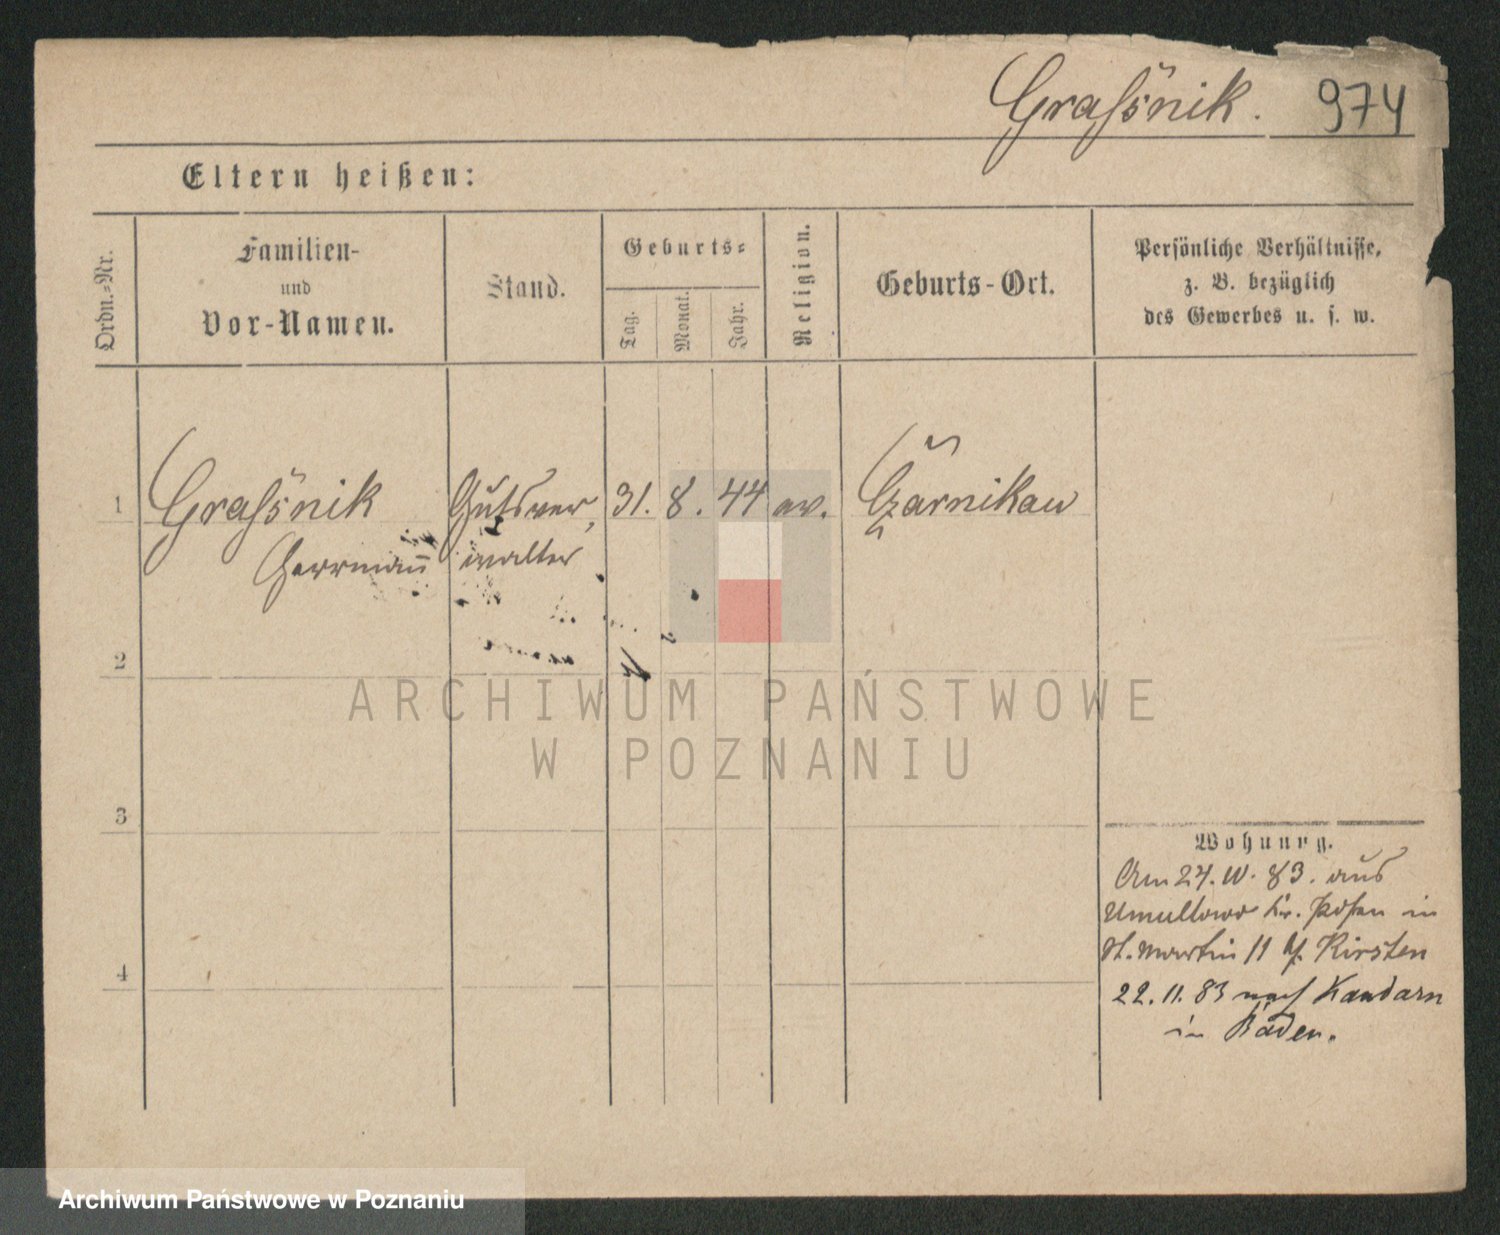 Graßnik. 974
Eltern heißen:
Ordn.-Nr.
Familien-
und
Vor-Namen.
Stand.
Geburts-
Tag.
Monat.
Jahr.
Religion.
Geburts-Ort.
Persönliche Verhältnisse,
z. B. bezüglich
des Gewerbes u. s. w.
1 Graßnik Gutsver, 31. 8. 44 ev. Czarnikau
Herrmann walter
2
ARCHIWUM PAŃSTWOWE
W POZNANIU
3
Wohnung.
Am 24. 83. aus
Umultowo Kr. Posen in
St. Martin 11 Kirsten
4
22. 11. 83 nach Kandarn
in Baden.
Archiwum Państwowe w Poznaniu